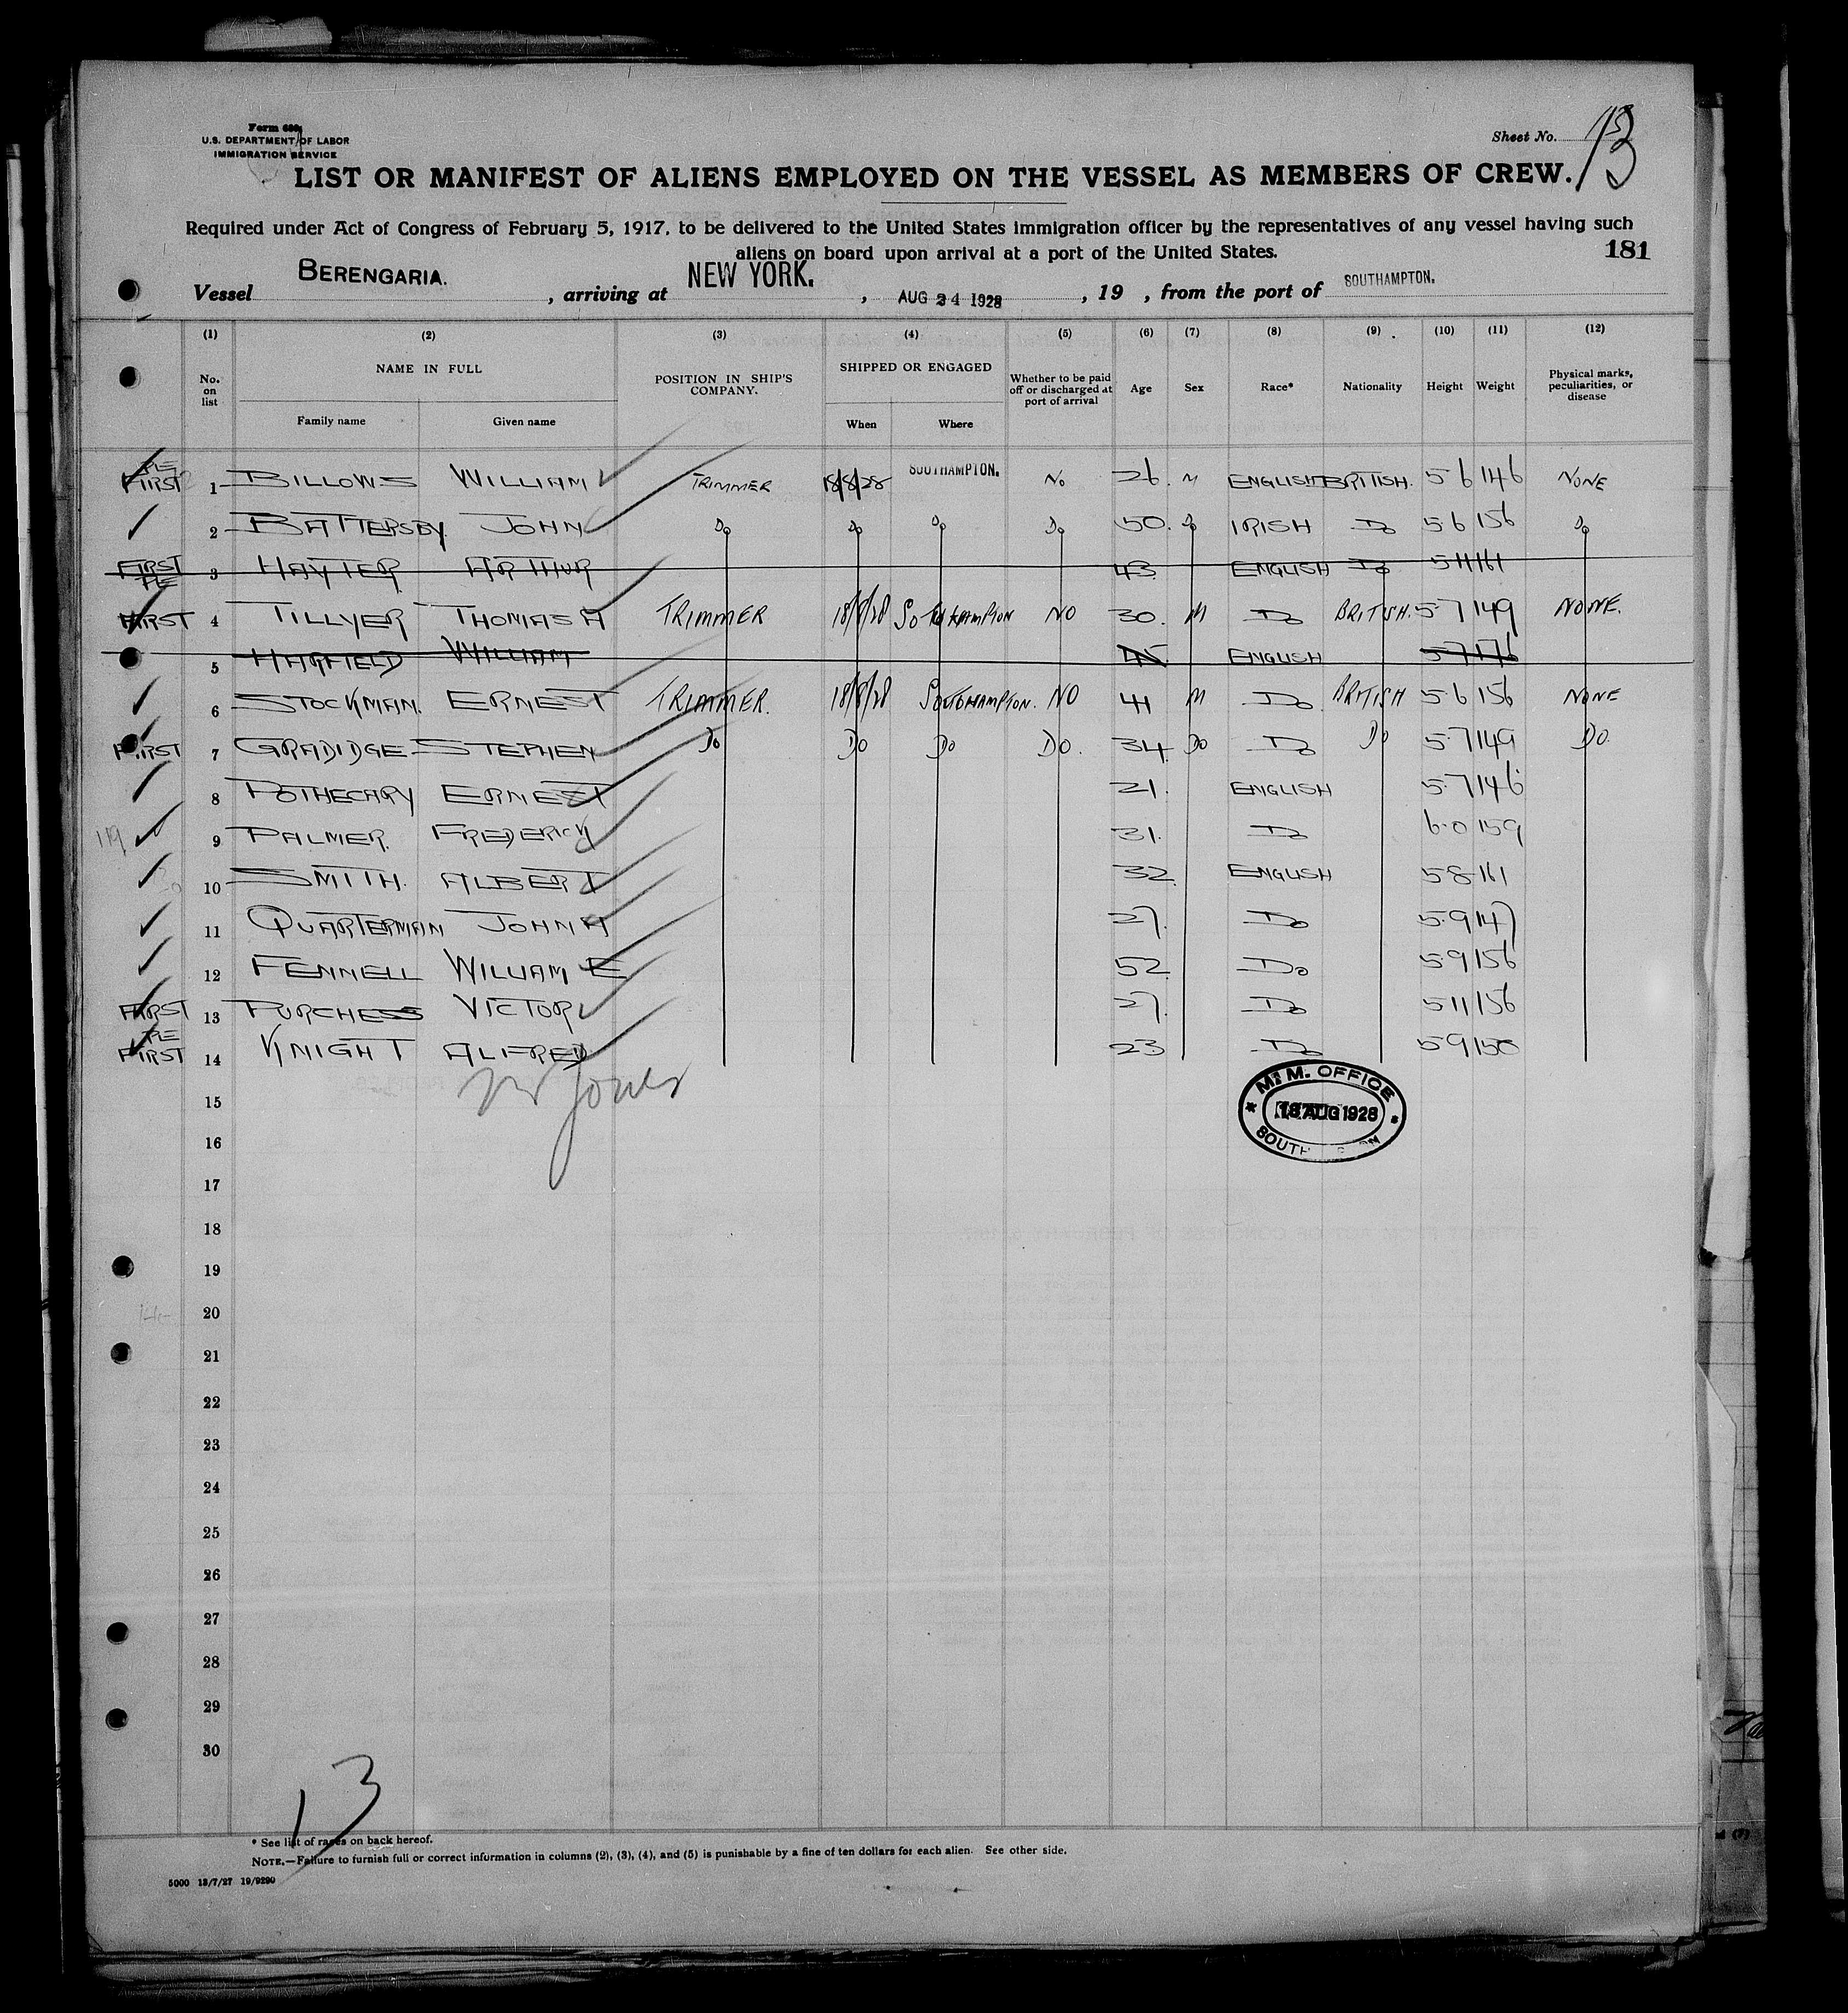 Form 689
U.S. DEPARTMENT OF LABOR
IMMIGRATION SERVICE
Sheet No. 13
LIST OR MANIFEST OF ALIENS EMPLOYED ON THE VESSEL AS MEMBERS OF CREW.
Required under Act of Congress of February 5, 1917, to be delivered to the United States immigration officer by the representatives of any vessel having such
aliens on board upon arrival at a port of the United States.
181
Vessel BERENGARIA. , arriving at NEW YORK. , AUG 24 1928 , 19 , from the port of SOUTHAMPTON.
(1) (2) (3) (4) (5) (6) (7) (8) (9) (10) (11) (12)
No. on list NAME IN FULL Family name Given name POSITION IN SHIP'S COMPANY. SHIPPED OR ENGAGED When Where Whether to be paid off or discharged at port of arrival Age Sex Race* Nationality Height Weight Physical marks, peculiarities, or disease
RE FIRST 1 BILLOWS WILLIAM TRIMMER 18/8/28 SOUTHAMPTON. No 26. M ENGLISH BRITISH. 5-6 146 NONE
2 BATTERSBY. JOHN Do Do Do Do 50. Do IRISH Do 5-6 156 Do
FIRST RE 3 HAYTER ARTHUR 43. ENGLISH Do 5-11 161
FIRST 4 TILLYER THOMAS A TRIMMER 18/8/28 SOUTHAMPTON NO 30. M Do BRITISH. 5-7 149 NONE.
5 HARFIELD WILLIAM 45 ENGLISH 5-7 176
6 STOCKMAN. ERNEST TRIMMER. 18/8/28 SOUTHAMPTON. NO 41 M Do BRITISH 5-6 156 NONE
FIRST 7 GRADIDGE STEPHEN Do Do Do Do. 34. Do Do Do 5-7 149 Do.
8 POTHECARY ERNEST 21. ENGLISH 5-7 146
119 9 PALMER. FREDERICK 31. Do 6-0 159
10 SMITH. ALBERT 32. ENGLISH 5-8 161
11 QUARTERMAN JOHN A 27. Do 5-9 147
12 FENNELL WILLIAM E 52. Do 5-9 156
FIRST 13 PURCHESS VICTOR 27. Do 5-11 156
RE FIRST 14 KNIGHT ALFRED 23 Do 5-9 150
Jones
15
M. OFFICE
18 AUG 1928
SOUTH
16
17
18
19
20
21
22
23
24
25
26
27
28
29
30
13
* See list of races on back hereof.
NOTE.—Failure to furnish full or correct information in columns (2), (3), (4), and (5) is punishable by a fine of ten dollars for each alien. See other side.
5000 13/7/27 19/9290